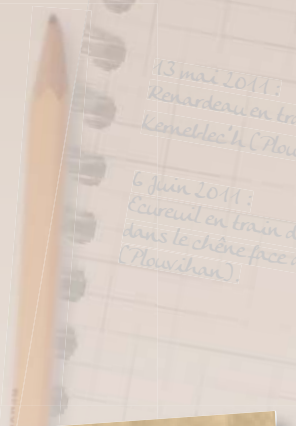 13 mai 2011 :
Renardeau en tra
Kerneblec'h (Plou
6 Juin 2011 :
Ecureuil en train d
dans le chêne face
(Plouvihan).